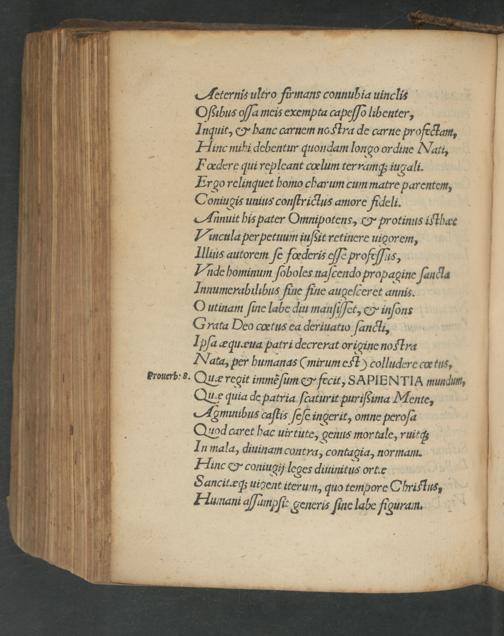 Aeternis ultro firmans connubia uinclis
Oßibus ossa meis exempta capesso libenter,
Inquit, & hanc carnem nostra de carne profectam,
Hinc mihi debentur quondam longo ordine Nati,
Fœdere qui repleant cœlum terramq; iugali.
Ergo relinquet homo charum cum matre parentem,
Coniugis unius constrictus amore fideli.
Annuit his pater Omnipotens, & protinus isthæc
Vincula perpetuum iußit retinere uigorem,
Illius autorem se fœderis esse professus,
Vnde hominum soboles nascendo propagine sancta
Innumerabilibus sine fine augesceret annis.
O utinam sine labe diu mansisset, & insons
Grata Deo cœtus ea deriuatio sancti,
Ipsa æquæua patri decrerat origine nostra
Nata, per humanas (mirum est) colludere cœtus,
Prouerb: 8. Quæ regit immēsum & fecit, SAPIENTIA mundum,
Quæ quia de patria scaturit purißima Mente,
Agminibus castis sese ingerit, omne perosa
Quod caret hac uirtute, genus mortale, ruitq;
In mala, diuinam contra, contagia, normam.
Hinc & coniugij leges diuinitus ortæ
Sancitæq; uigent iterum, quo tempore Christus,
Humani assumpsit generis sine labe figuram.